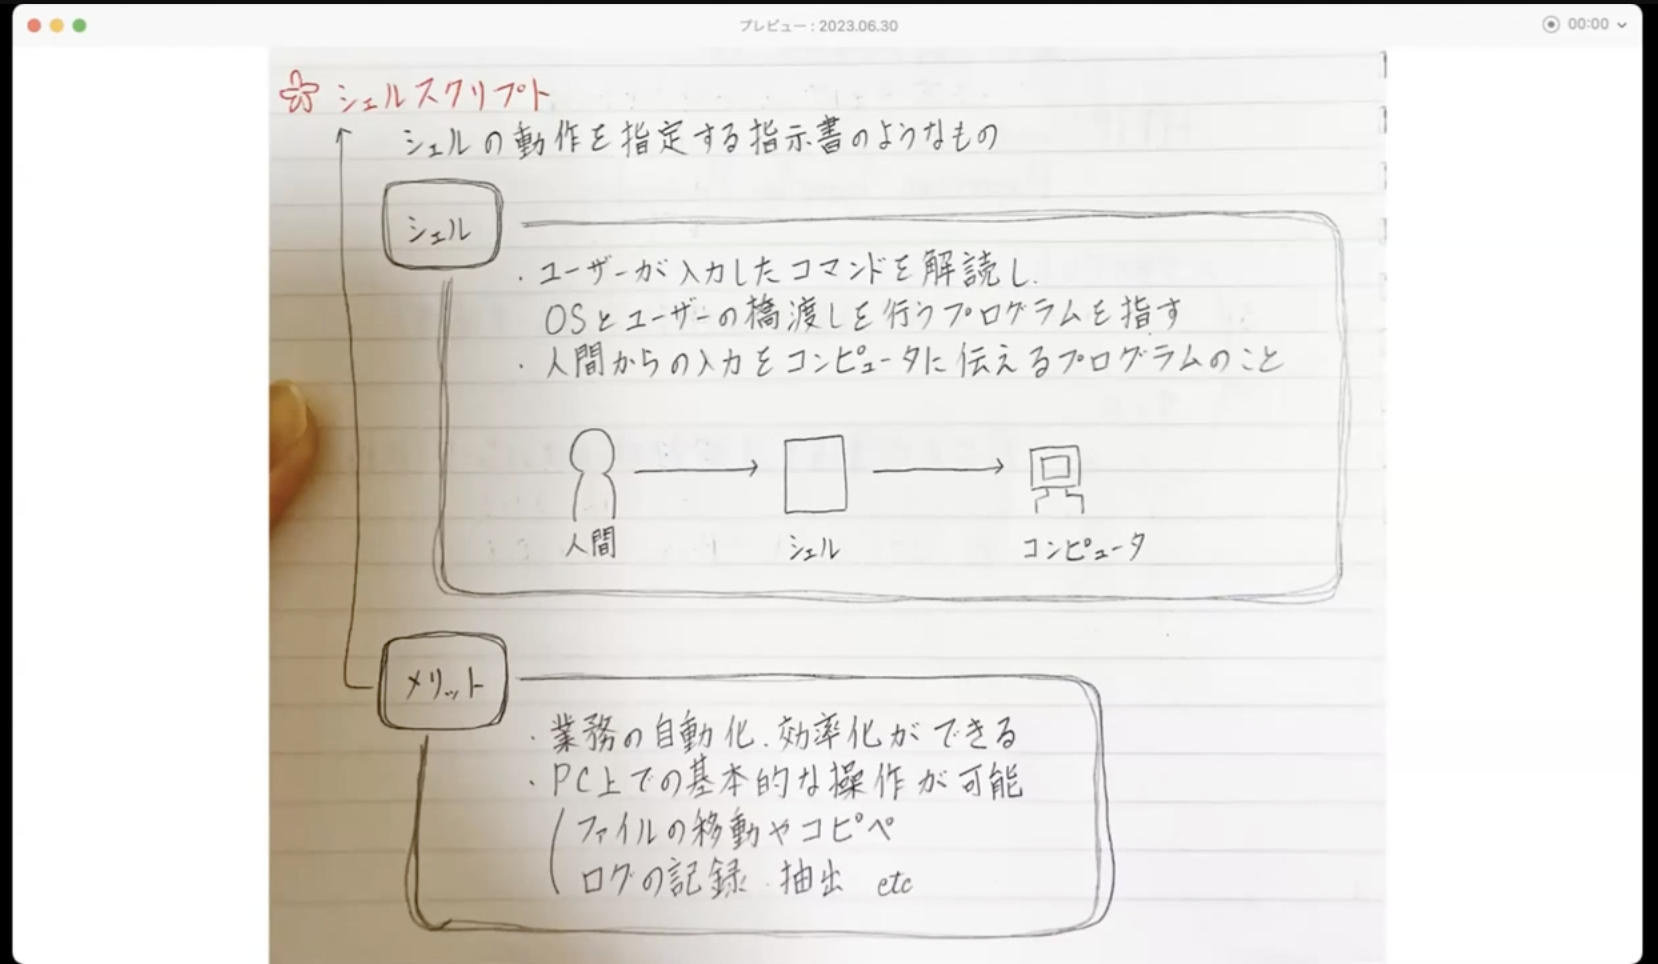 プレビュー : 2023.06.30
00:00
シェルスクリプト
シェルの動作を指定する指示書のようなもの
シェル
・ユーザーが入力したコマンドを解読し、
OSとユーザーの橋渡しを行うプログラムを指す
・人間からの入力をコンピュータに伝えるプログラムのこと
人間 シェル コンピュータ
メリット
・業務の自動化、効率化ができる
・PC上での基本的な操作が可能
ファイルの移動やコピペ
ログの記録、抽出 etc